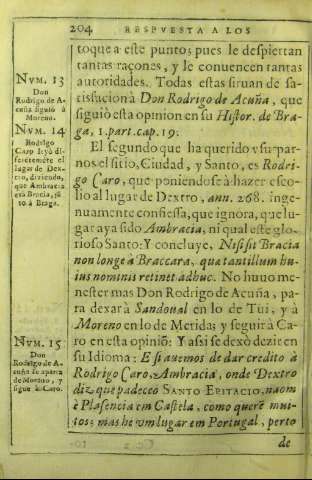 204 RESPVESTA A LOS
toque a este punto; pues le despiertan
tantas raçones, y le conuencen tantas
autoridades. Todas estas siruan de sa-
tisfacion à Don Rodrigo de Acuña, que
siguiò esta opinion en su Histor. de Bra-
ga, 1. part. cap. 19.
El segundo que ha querido vsurpar-
nos el sitio, Ciudad, y Santo, es Rodri-
go Caro, que poniendose à hazer esco-
lio al lugar de Dextro, ann. 268. inge-
nuamente confiessa, que ignora, que lu-
gar aya sido Ambracia, ni qual este glo-
rioso Santo: Y concluye, Nisi sit Bracia
non longè à Braccara, qua tantillum hu-
ius nominis retinet adhuc. No huuo me-
nester mas Don Rodrigo de Acuña, pa-
ra dexarà Sandoual en lo de Tui, y à
Moreno en lo de Merida; y seguir à Ca-
ro en esta opiniõ: Y assi se dexò dezir en
su Idioma: E si auemos de dar credito à
Rodrigo Caro, Ambracia, onde Dextro
diz que padeceo SANTO EPITACIO, naom
è Plasencia em Castela, como querẽ mui-
tos; mas he vm lugar em Portugal, perto
de
NVM. 13
Don
Rodrigo de A-
cuña siguiò à
Moreno.
NVM. 14
Rodrigo
Caro
el
lugar de Dex-
tro, diziendo,
que Ambracia
erà Bracia, jũ
to à Braga.
NVM. 15
Don
Rodrigo de A-
cuña se aparta
de Moreno, y
sigue à Caro.